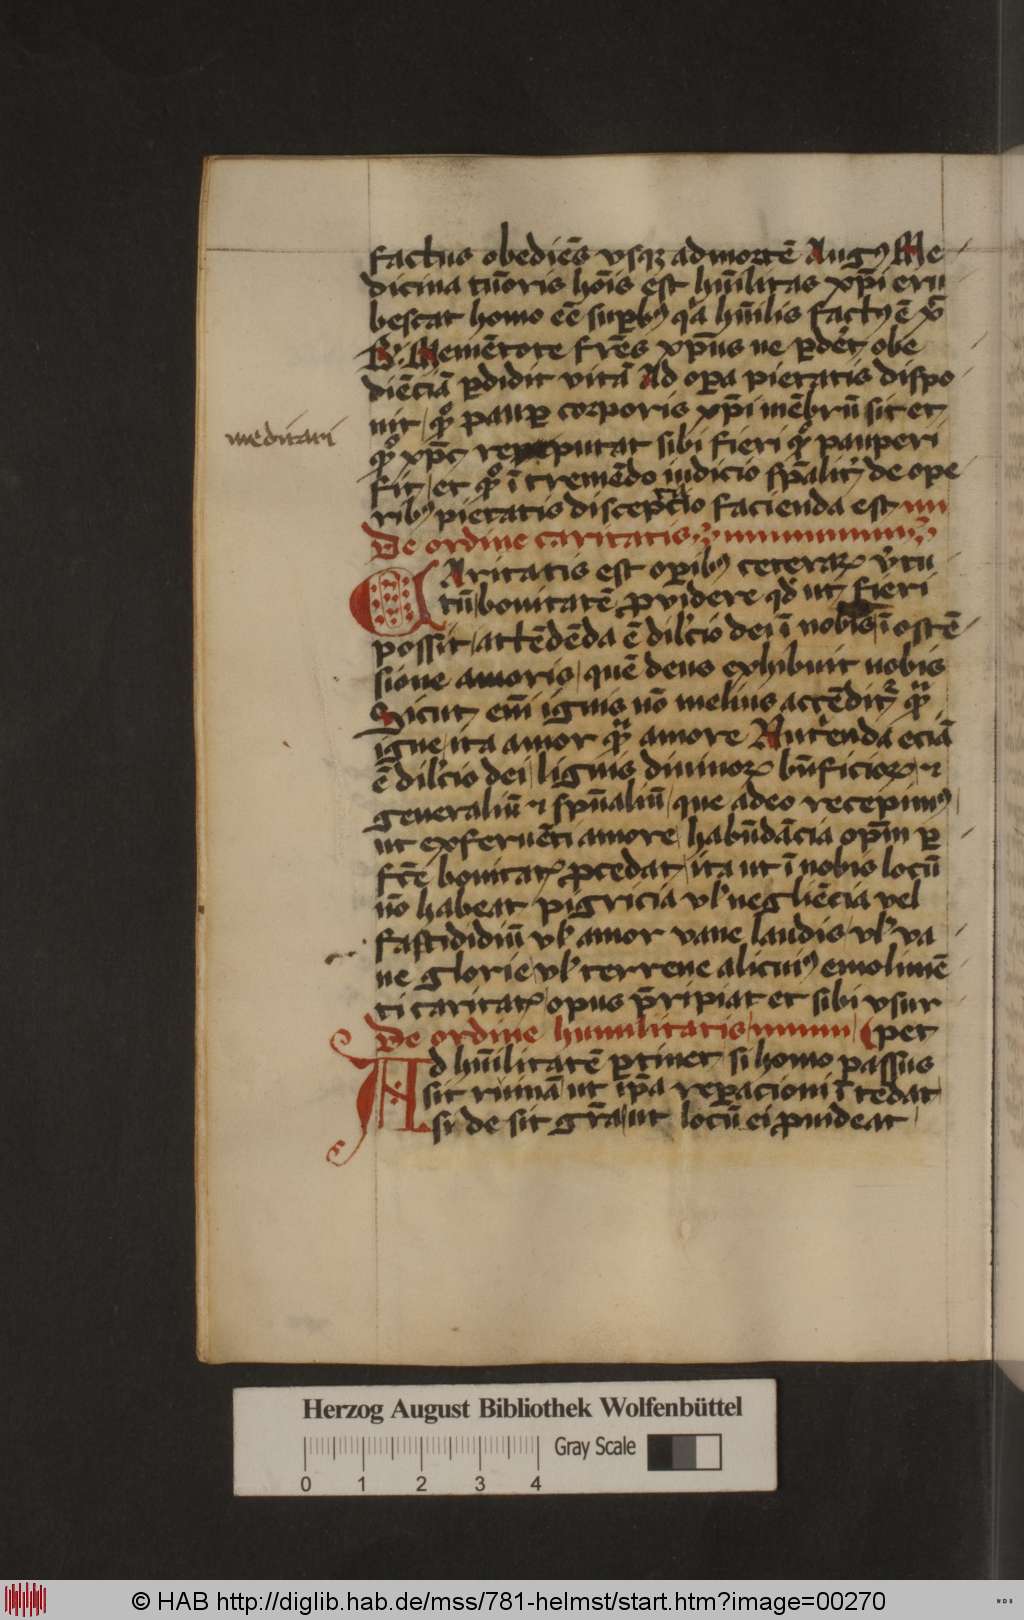 factus obediēs vsqꝫ ad mortē Augꝰ Me
dicina tūoris hoīs est hūilitas xp̄i eru
bescat homo eē suꝑbꝰ qͣ hūilis factꝰ ē xp̄
B̓. Memētote fr̄es xp̄us ne ꝑdēt obe
diēciā ꝑdidit vitā Ad oꝑa pietatis dispo
nit qͦ pauꝑ corporis xp̄i mēbrū sit et
meditari
qͦ xp̄c reputat sibi fieri qͦ pauperi
fit et qͦ ī tremēdo iudicio sp̄alit̾ de ope
ribꝰ pietatis discep̄tio facienda est
De ordine caritatis
CAritatis est oꝑibꝰ ceteraꝝ v̾tu
tū bonitatē ꝓvidere qd̓ ut fieri
possit attēdēda ē dil̓cio dei ī nobis ī ostē
sione amoris quē deus exhibuit nobis
Sicut em̄ ignis nō melius accēditᷣ qͣ
igne ita amor qͣ amore Nut̓enda eciā
ē dil̓cio dei lignis diuinoꝝ bn̄ficioꝝ ⁊
generaliū ⁊ sp̄ualiū que adeo recepimꝰ
ut ex feruēti amore habūdācia opm̄ ꝑ
fc̄e bonitatꝭ ꝓcedat ita ut ī nobis locū
nō habeat pigricia vl̓ negliēcia vel
fastididiū vl̓ amor vane laudis vl̓ va
ne glorie vl̓ terrene alicuiꝰ emolimē
ti caritatꝭ opus p̄ripiat et sibi vsur
De ordine humilitatis (pet
Ad hūilitatē ꝑtinet si homo passus
sit ruinā ut ip̄a reꝑacioni ītēdat
si de sit gr̄a ut locū ei ꝓuideat
Herzog August Bibliothek Wolfenbüttel
Gray Scale
0 1 2 3 4
© HAB http://diglib.hab.de/mss/781-helmst/start.htm?image=00270